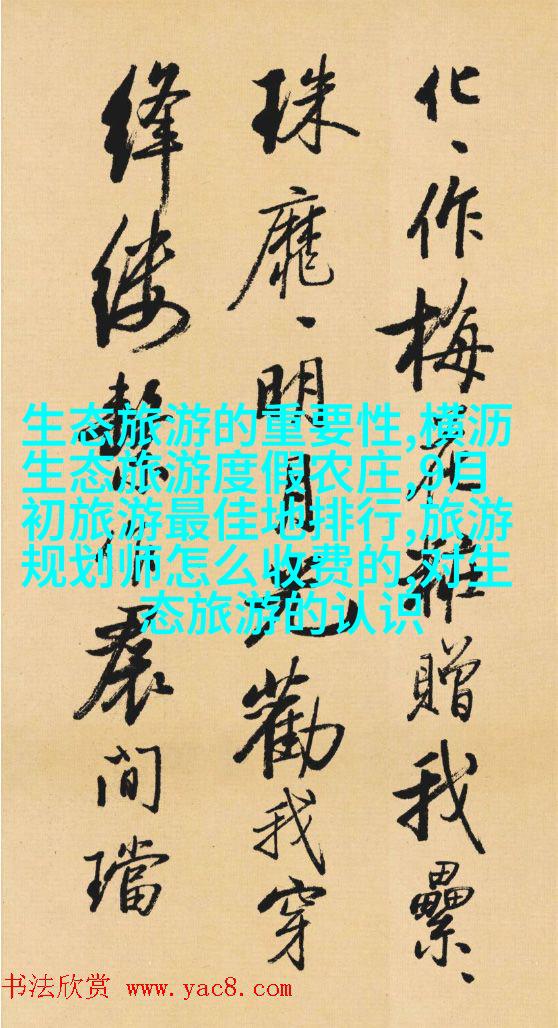 化、作梅花 贈我纍、
珠靡、明月光勸我穿
絳縷繫作裠间璫
生态旅游的重要性,横沥
生态旅游度假农庄,9月
初旅游最佳地排行,旅游
规划师怎么收费的,对生
态旅游的认识
书法欣赏 www.yac8.com